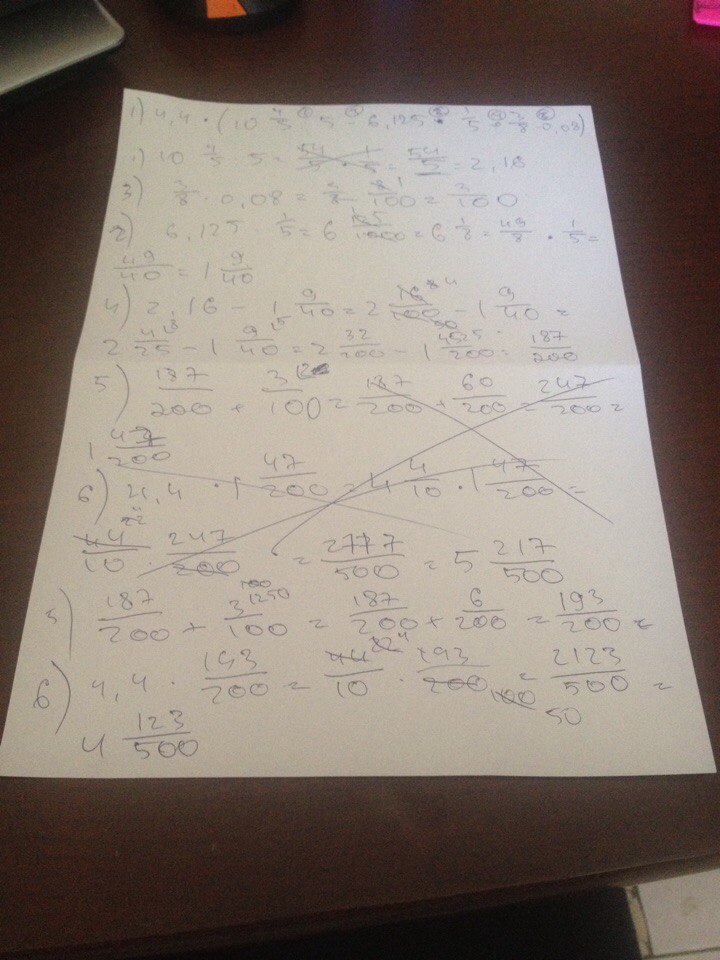 1) 4,4 · (10 4/5 : 5 - 6,125 · 1/5 + 3/8 · 0,08)
1) 10 4/5 5 = 54/5 · 1/5 = 54/5 = 2,16
3) 3/8 · 0,08 = 3/8 · 8/100 = 3/100
2) 6,125 1/5 = 6 125/1000 = 6 1/8 = 49/8 · 1/5 =
49/40 = 1 9/40
4) 2,16 - 1 9/40 = 2 16/100 - 1 9/40 =
2 4/25 - 1 9/40 = 2 32/200 - 1 45/200 = 187/200
5) 187/200 + 3/100 = 187/200 + 60/200 = 247/200 =
1 47/200
6) 4,4 · 1 47/200 = 4 4/10 · 1 47/200 =
44/10 · 247/200 = 2777/500 = 5 217/500
5) 187/200 + 3/100 = 187/200 + 6/200 = 193/200 =
6) 4,4 · 193/200 = 44/10 · 193/200 = 2123/500 =
4 123/500